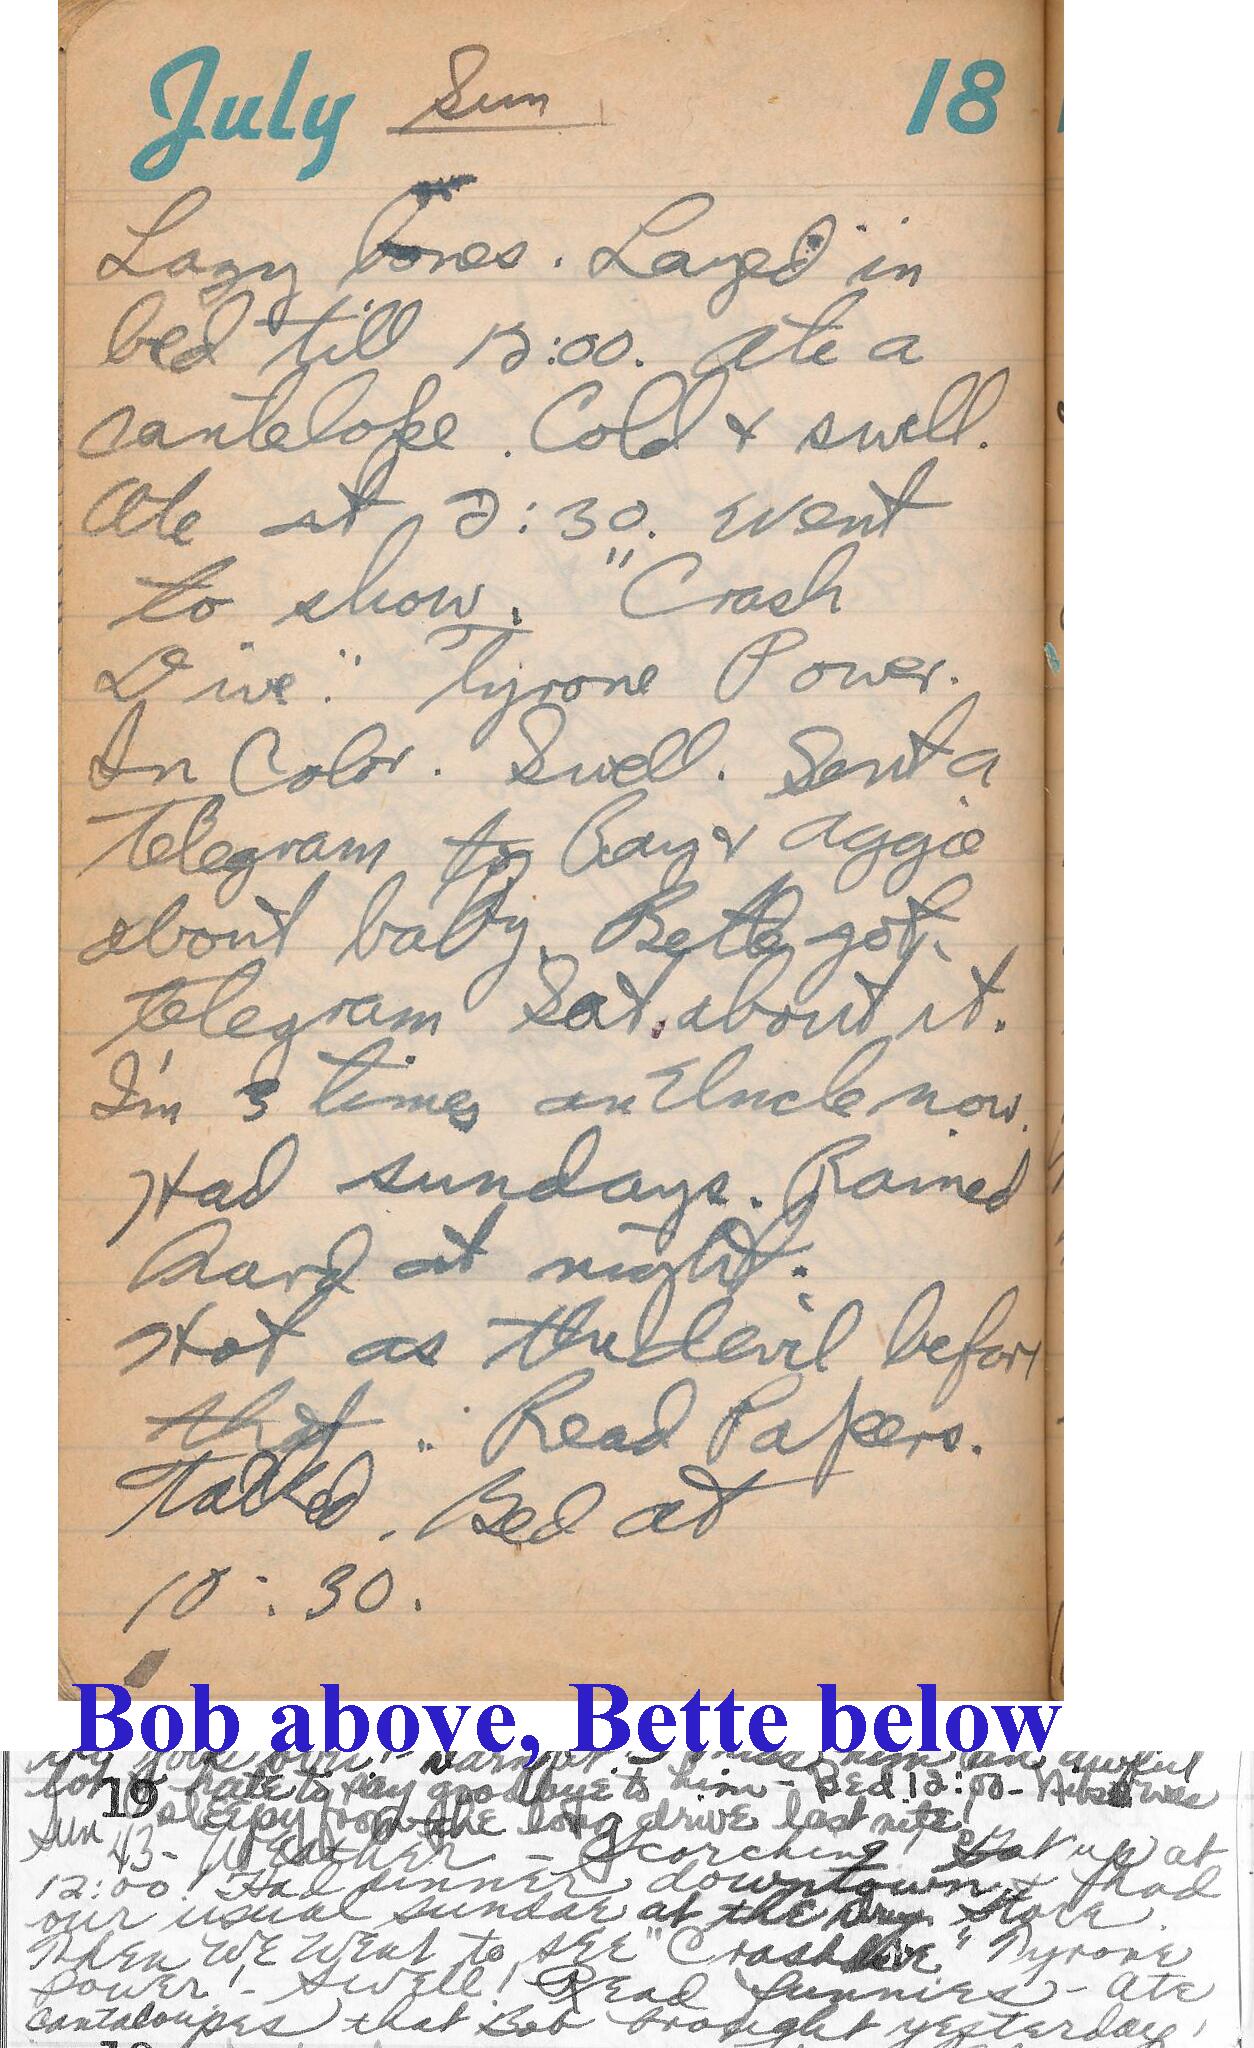 July Sun 18
Lazy bones. Layed in
bed till 12:00. Ate a
cantelope. Cold & swell.
Ate at 2:30. Went
to show. "Crash
Dive." Tyrone Power.
In Color. Swell. Sent a
Telegram to Ray & Aggie
about baby. Bette got
telegram Sat. about it.
I'm 3 times an Uncle now.
Had sundays. Rained
hard at night.
Hot as the devil before
that. Read Papers.
Talked. Bed at
10:30.
Bob above, Bette below
him an awful
lot hate to say goodbye to him - Bed 12:00 - was
19 sleepy from the long drive last nite!
Sun 43 - Weather - Scorching! Got up at
12:00! Had dinner downtown & had
our usual sundae at the Drug Store.
Then we went to see "Crash Dive" Tyrone
Power! - Swell! Read funnies - ate
cantaloupes that Bob brought yesterday!